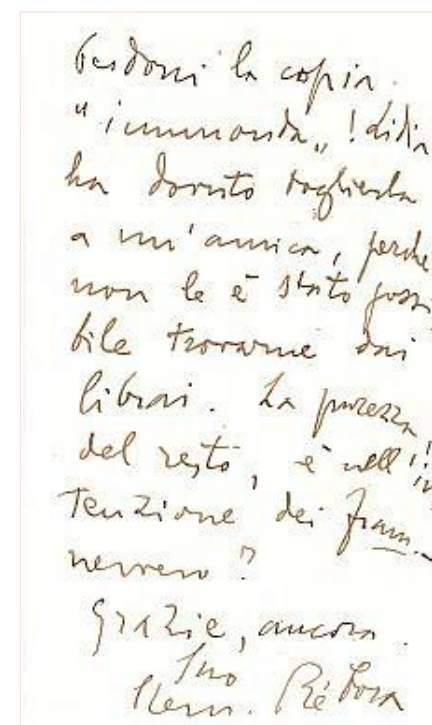 Perdoni la copia
"immonda„! Lidia
ha dovuto toglierla
a un'amica, perché
non le è stato possi
bile trovarne dai
librai. La purezza,
del resto, è nell'in
tenzione dei fram.
nevvero?
Grazie, ancora.
Suo
Clem. Rèbora